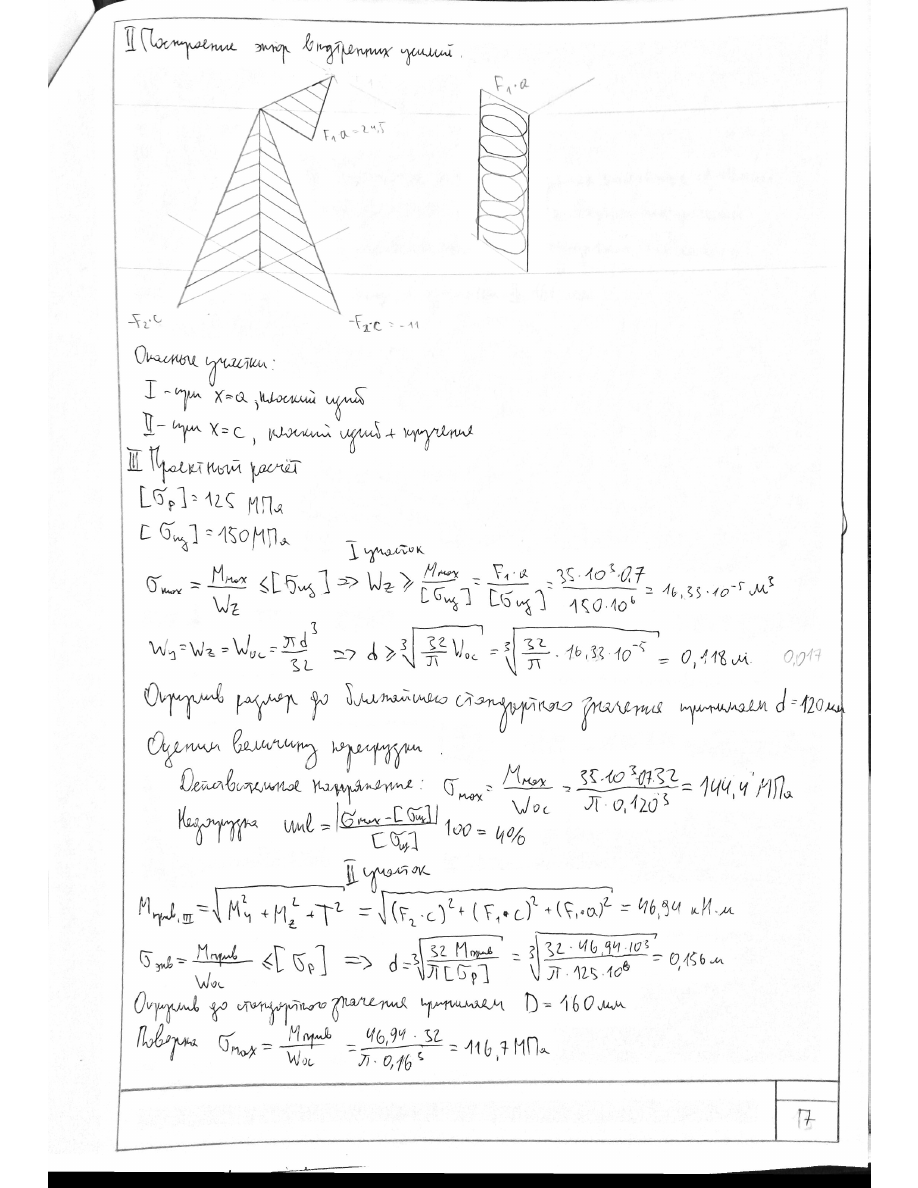 II Построение эпюр внутренних усилий.
F₁·a
F₁a = 24,5
-F₂·c
-F₂·c = -11
Опасные участки:
I - при x=a, плоский изгиб
II - при x=c, плоский изгиб + кручение
III Проектный расчёт
[σр] = 125 МПа
[σиз] = 150 МПа
I участок
σmax = Mmax/Wz ≤ [σиз] => Wz ≥ Mmax/[σиз] = F₁·a/[σиз] = 35·10³·0,7/150·10⁶ = 16,33·10⁻⁵ м³
Wy = Wz = Wос = πd³/32 => d ≥ ∛(32/π Wос) = ∛(32/π · 16,33·10⁻⁵) = 0,118 м 0,017
Округлив размер до ближайшего стандартного значение принимаем d = 120 мм
Оценим величину перегрузки.
Действительное напряжение: σmax = Mmax/Wос = 35·10³·0,7·32/π·0,120³ = 144,4 МПа
Недогрузка = |σmax - [σиз]|/[σиз] 100 = 4%
II участок
Mприв,III = √(My² + Mz² + T²) = √((F₂·c)² + (F₁·c)² + (F₁·a)²) = 46,94 кН·м
σэкв = Mприв/Wос ≤ [σр] => d = ∛(32 Mприв/π[σр]) = ∛(32·46,94·10³/π·125·10⁶) = 0,156 м
Округлив до стандартного значение принимаем D = 160 мм
Поверка σmax = Mприв/Wос = 46,94·32/π·0,16³ = 116,7 МПа
17